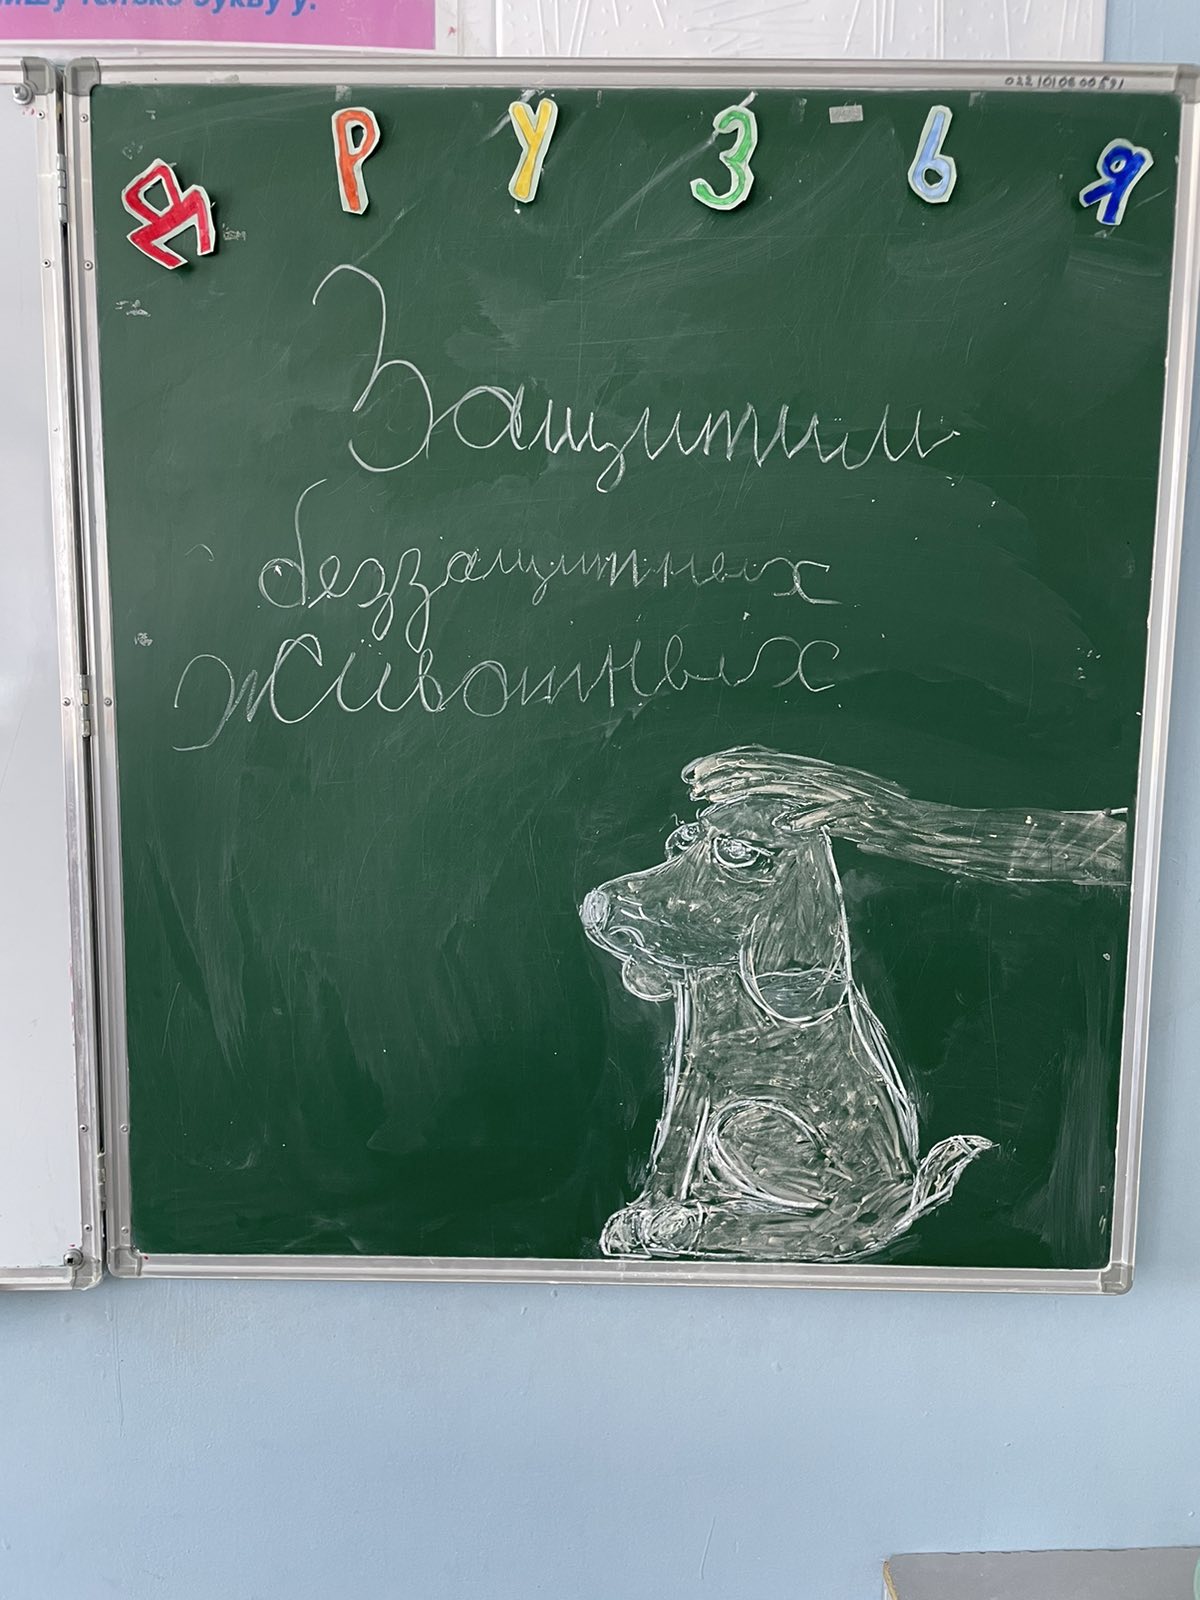 пишу только букву у.
0221010600591
Друзья
Защитим
беззащитных
животных